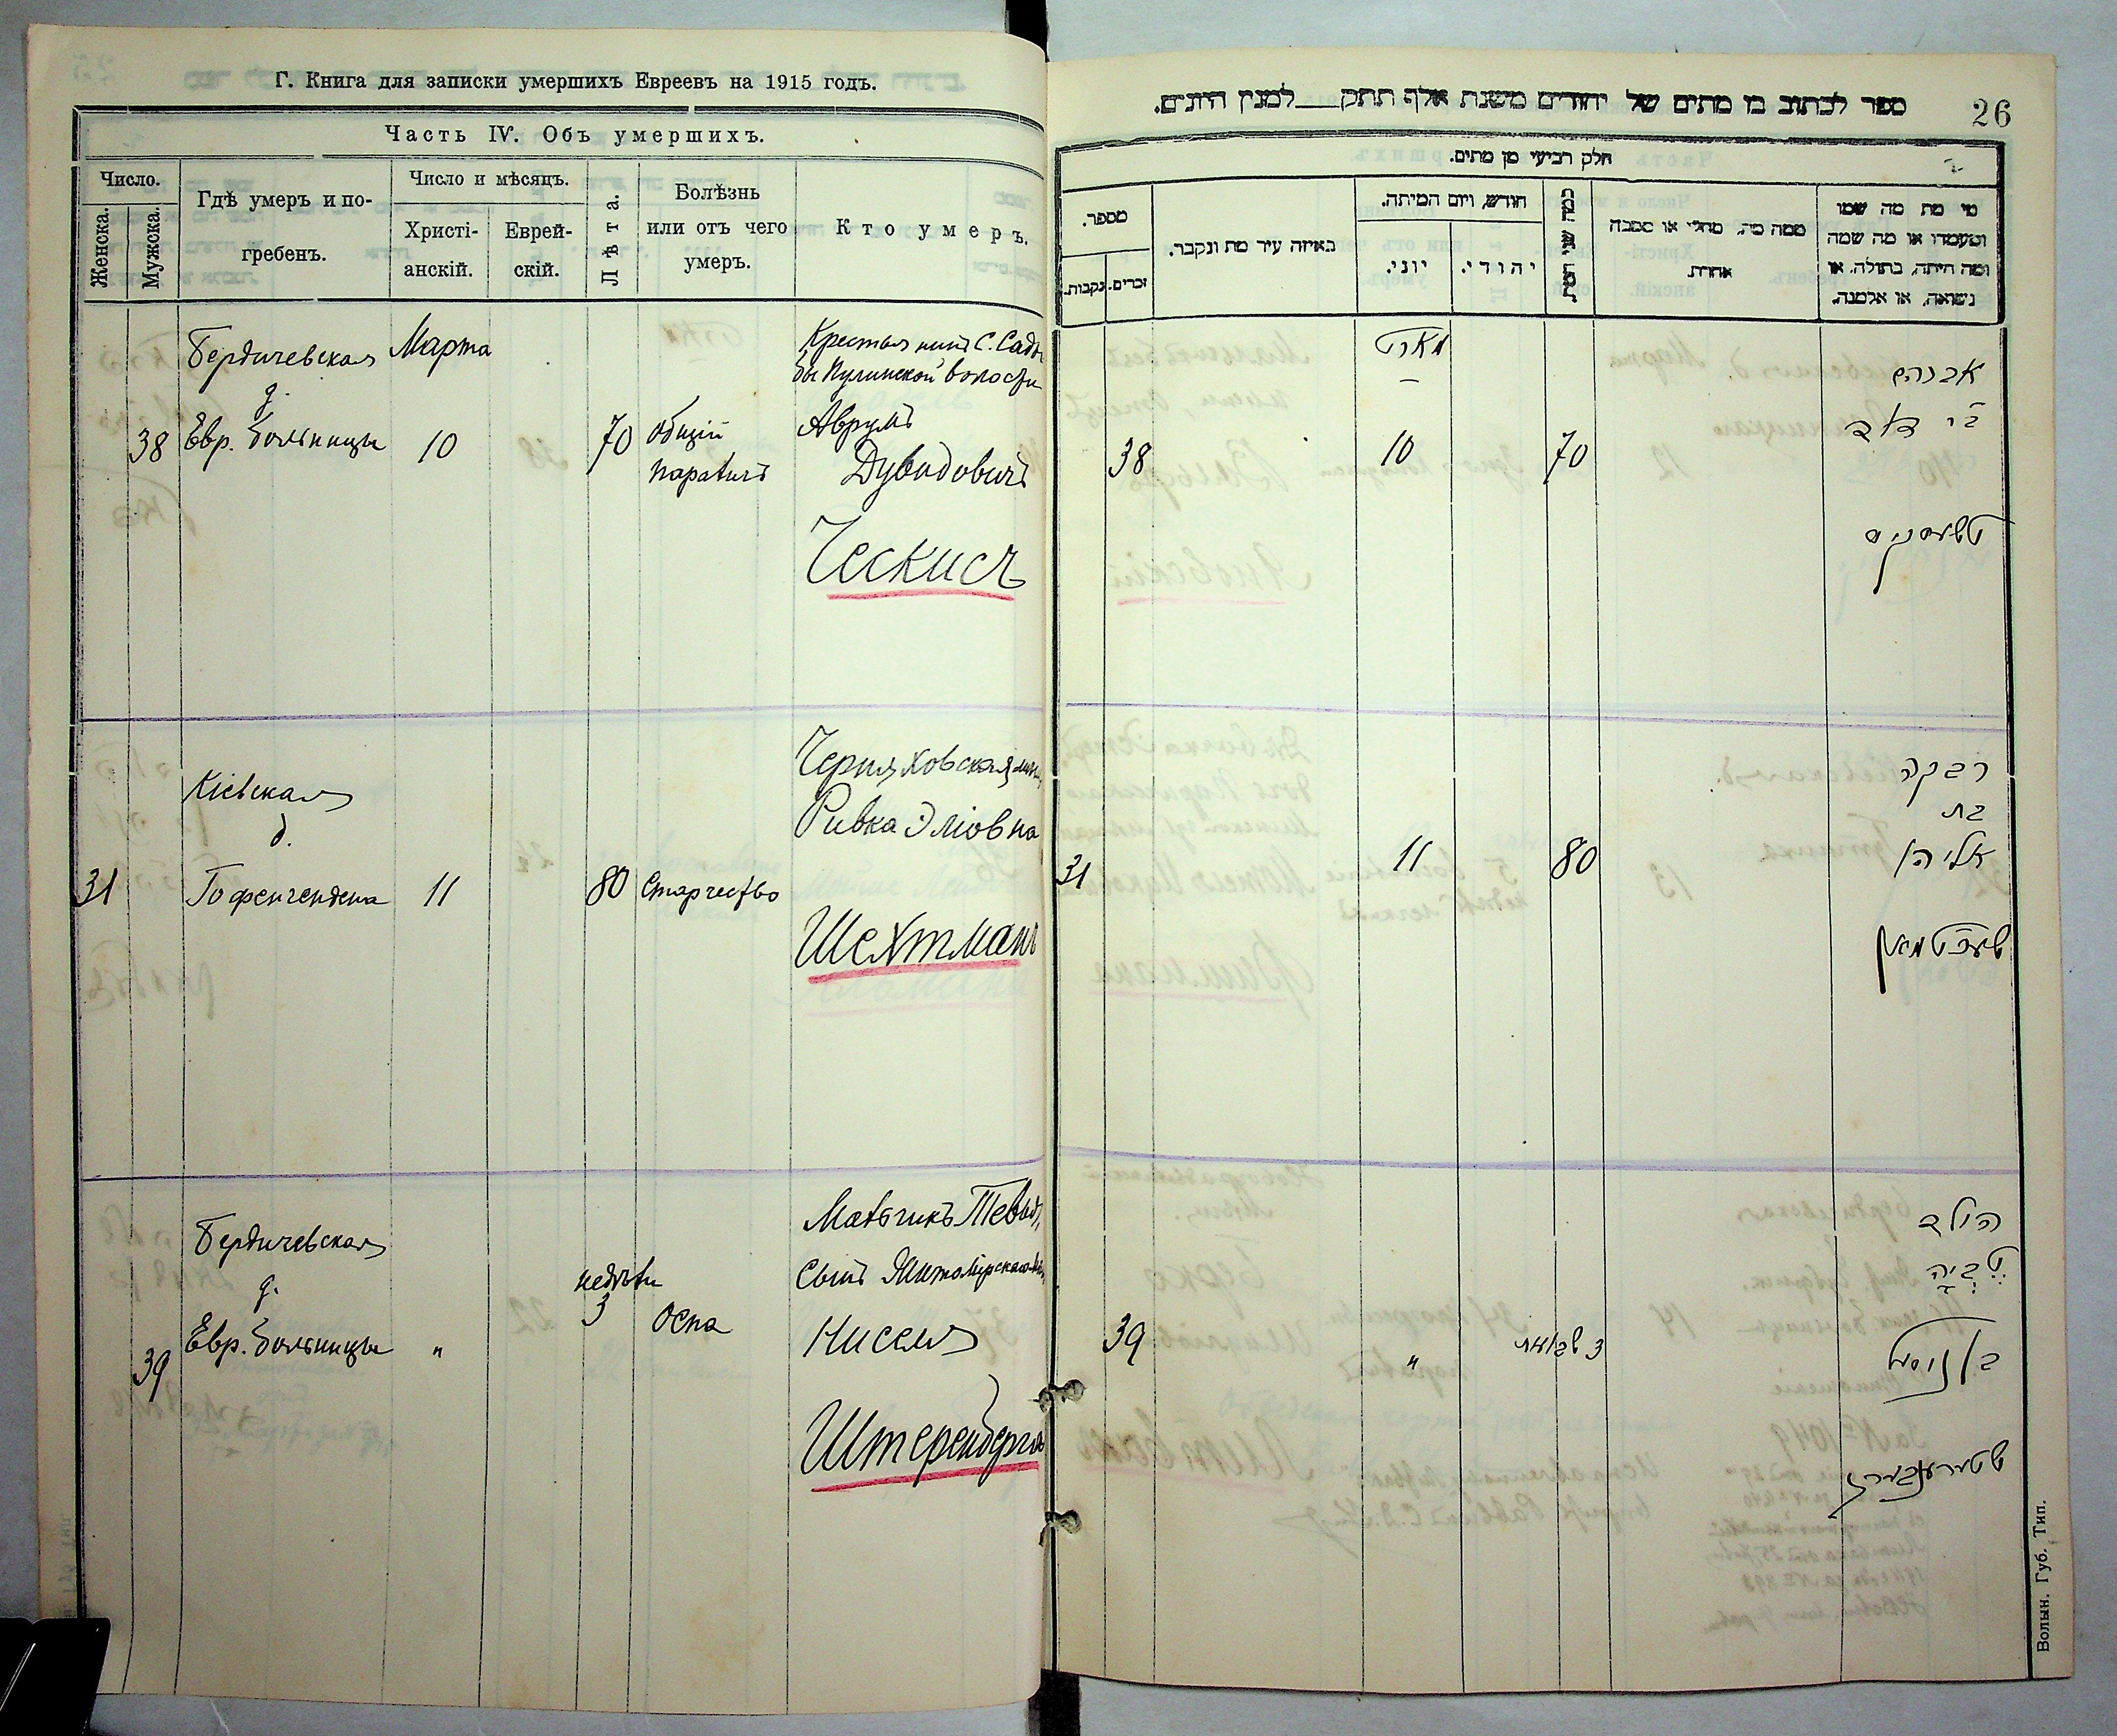 Г. Книга для записки умершихъ Евреевъ на 1915 годъ.
Часть IV. Объ умершихъ.
Число.
Женска.
Мужска.
Гдѣ умеръ и по-
гребенъ.
Число и мѣсяцъ.
Христі-
анскій.
Еврей-
скій.
Лѣта.
Болѣзнь
или отъ чего
умеръ.
Кто умеръ.
38
Бердичевская
д.
Евр. больницы
Марта
10
70
общій
параличъ
Крестьянинъ С. Садо
бы Пулинской волости
Аврумъ
Дувидовичъ
Ческисъ
31
Кіевская
д.
Гофенгендена
11
80
Старчество
Черняховская мѣщ.
Ривка Эліовна
Шехтманъ
39
Бердичевская
д.
Евр. больницы
"
недѣли
3
Оспа
Мальчикъ Тевья,
сынъ Житомірскаго мѣщ.
Ниселя
Штеренберга
26
ספר לכתוב בו מתים של יהודים משנת אלף תתק לטנין היונים.
חלק רביעי מן מתים.
מספר.
נקבות.
זכרים.
באיזה עיר מת ונקבר.
חודש, ויום המיתה.
יוני.
יהודי.
כמה שני המת
ממה מת, מחלי או מסבה
אחרת.
מי מת מה שמו
ומעמדו או מה שמה
ומה היתה, בתולה, או
נשואה, או אלמנה.
38
מארט
10
70
אברהם
ב״ר דוד
טשעסקיס
31
11
80
רבקה
בת
אליהו
שעכטמאן
39
"
3 שבועות
הילד
טביה
בן ניסל
שטערענבערג
Волын. Губ. Тип.